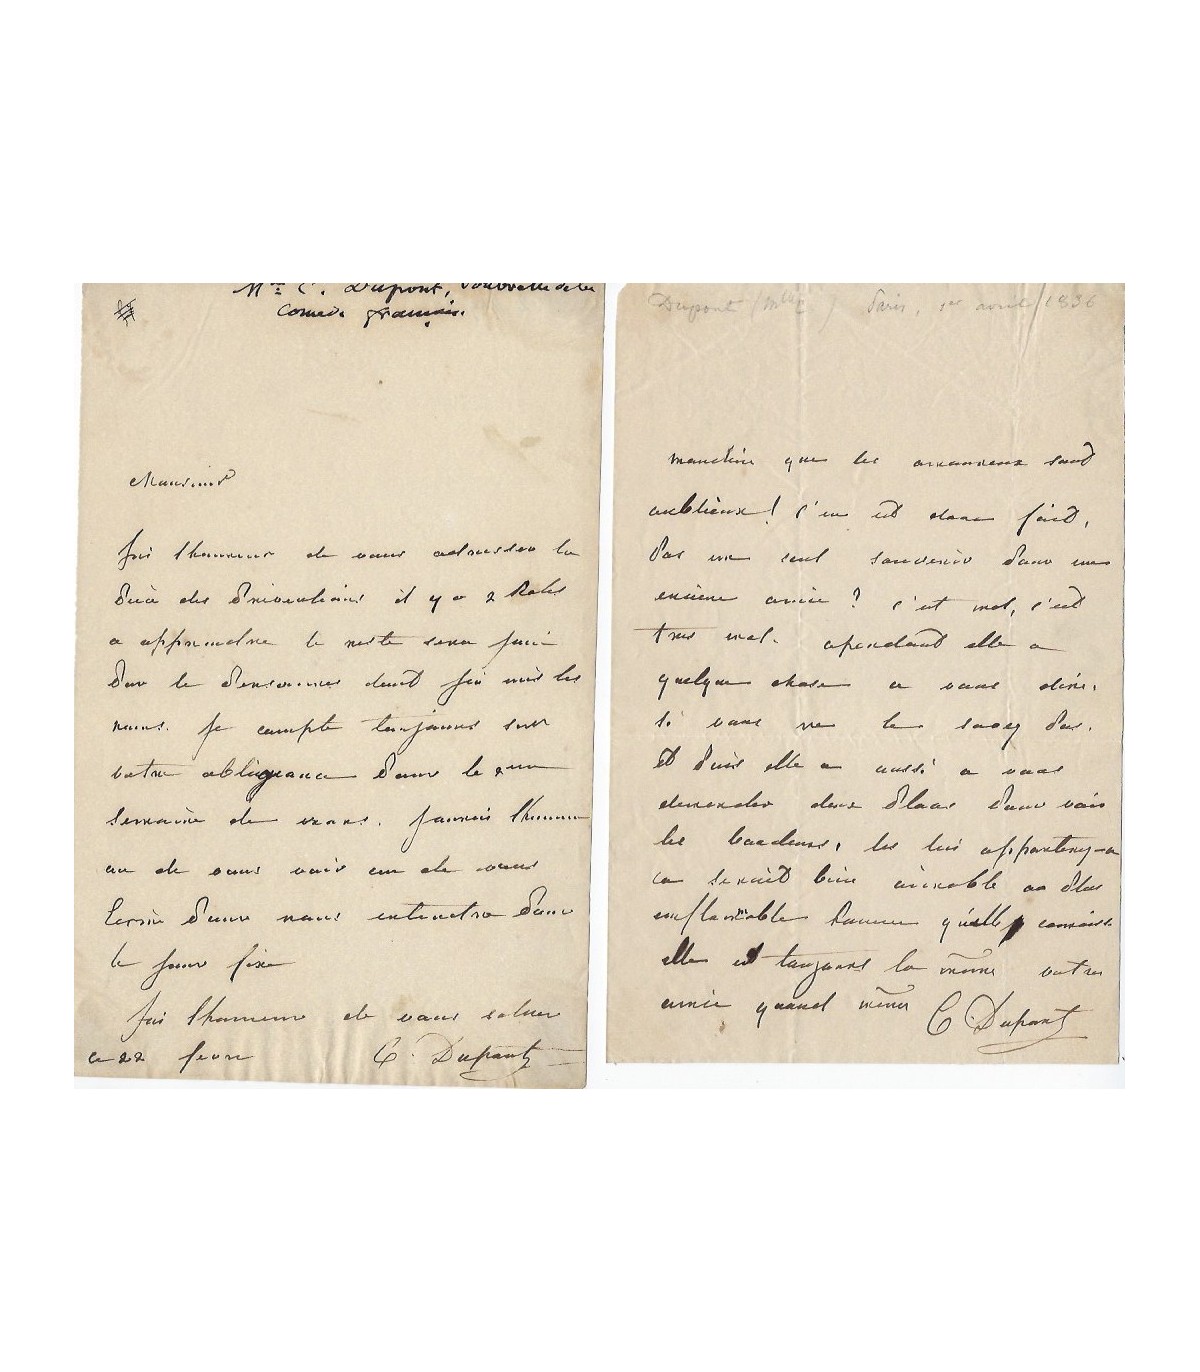 Mlle C. Dupont, soubrette de la
Comédie française.
Monsieur
J'ai l'honneur de vous adresser la
il y a 2 Roles
a apprendre le reste sera
par le personnes dont j'ai mis les
noms. Je compte toujours sur
votre obligeance pour le 2me
semaine de mars. J'aurais l'honneur
ou de vous voir ou de vous
pour nous entendre pour
le jour fixe
J'ai l'honneur de vous saluer
ce 22 fevr C. Dupont
Dupont (Mlle C) Paris, 1er avril 1836
que les amoureux sont
oublieux! c'en est donc fait,
pas un seul souvenir pour une
amie? c'est mal, c'est
tres mal. cependant elle a
quelque chose a vous dire.
si vous ne le savez pas.
et puis elle a aussi a vous
demander deux places pour voir
les les lui apporterez-
ce serait bien aimable au plus
femme qu'elle connaisse
elle est toujours la même votre
amie quand même C Dupont